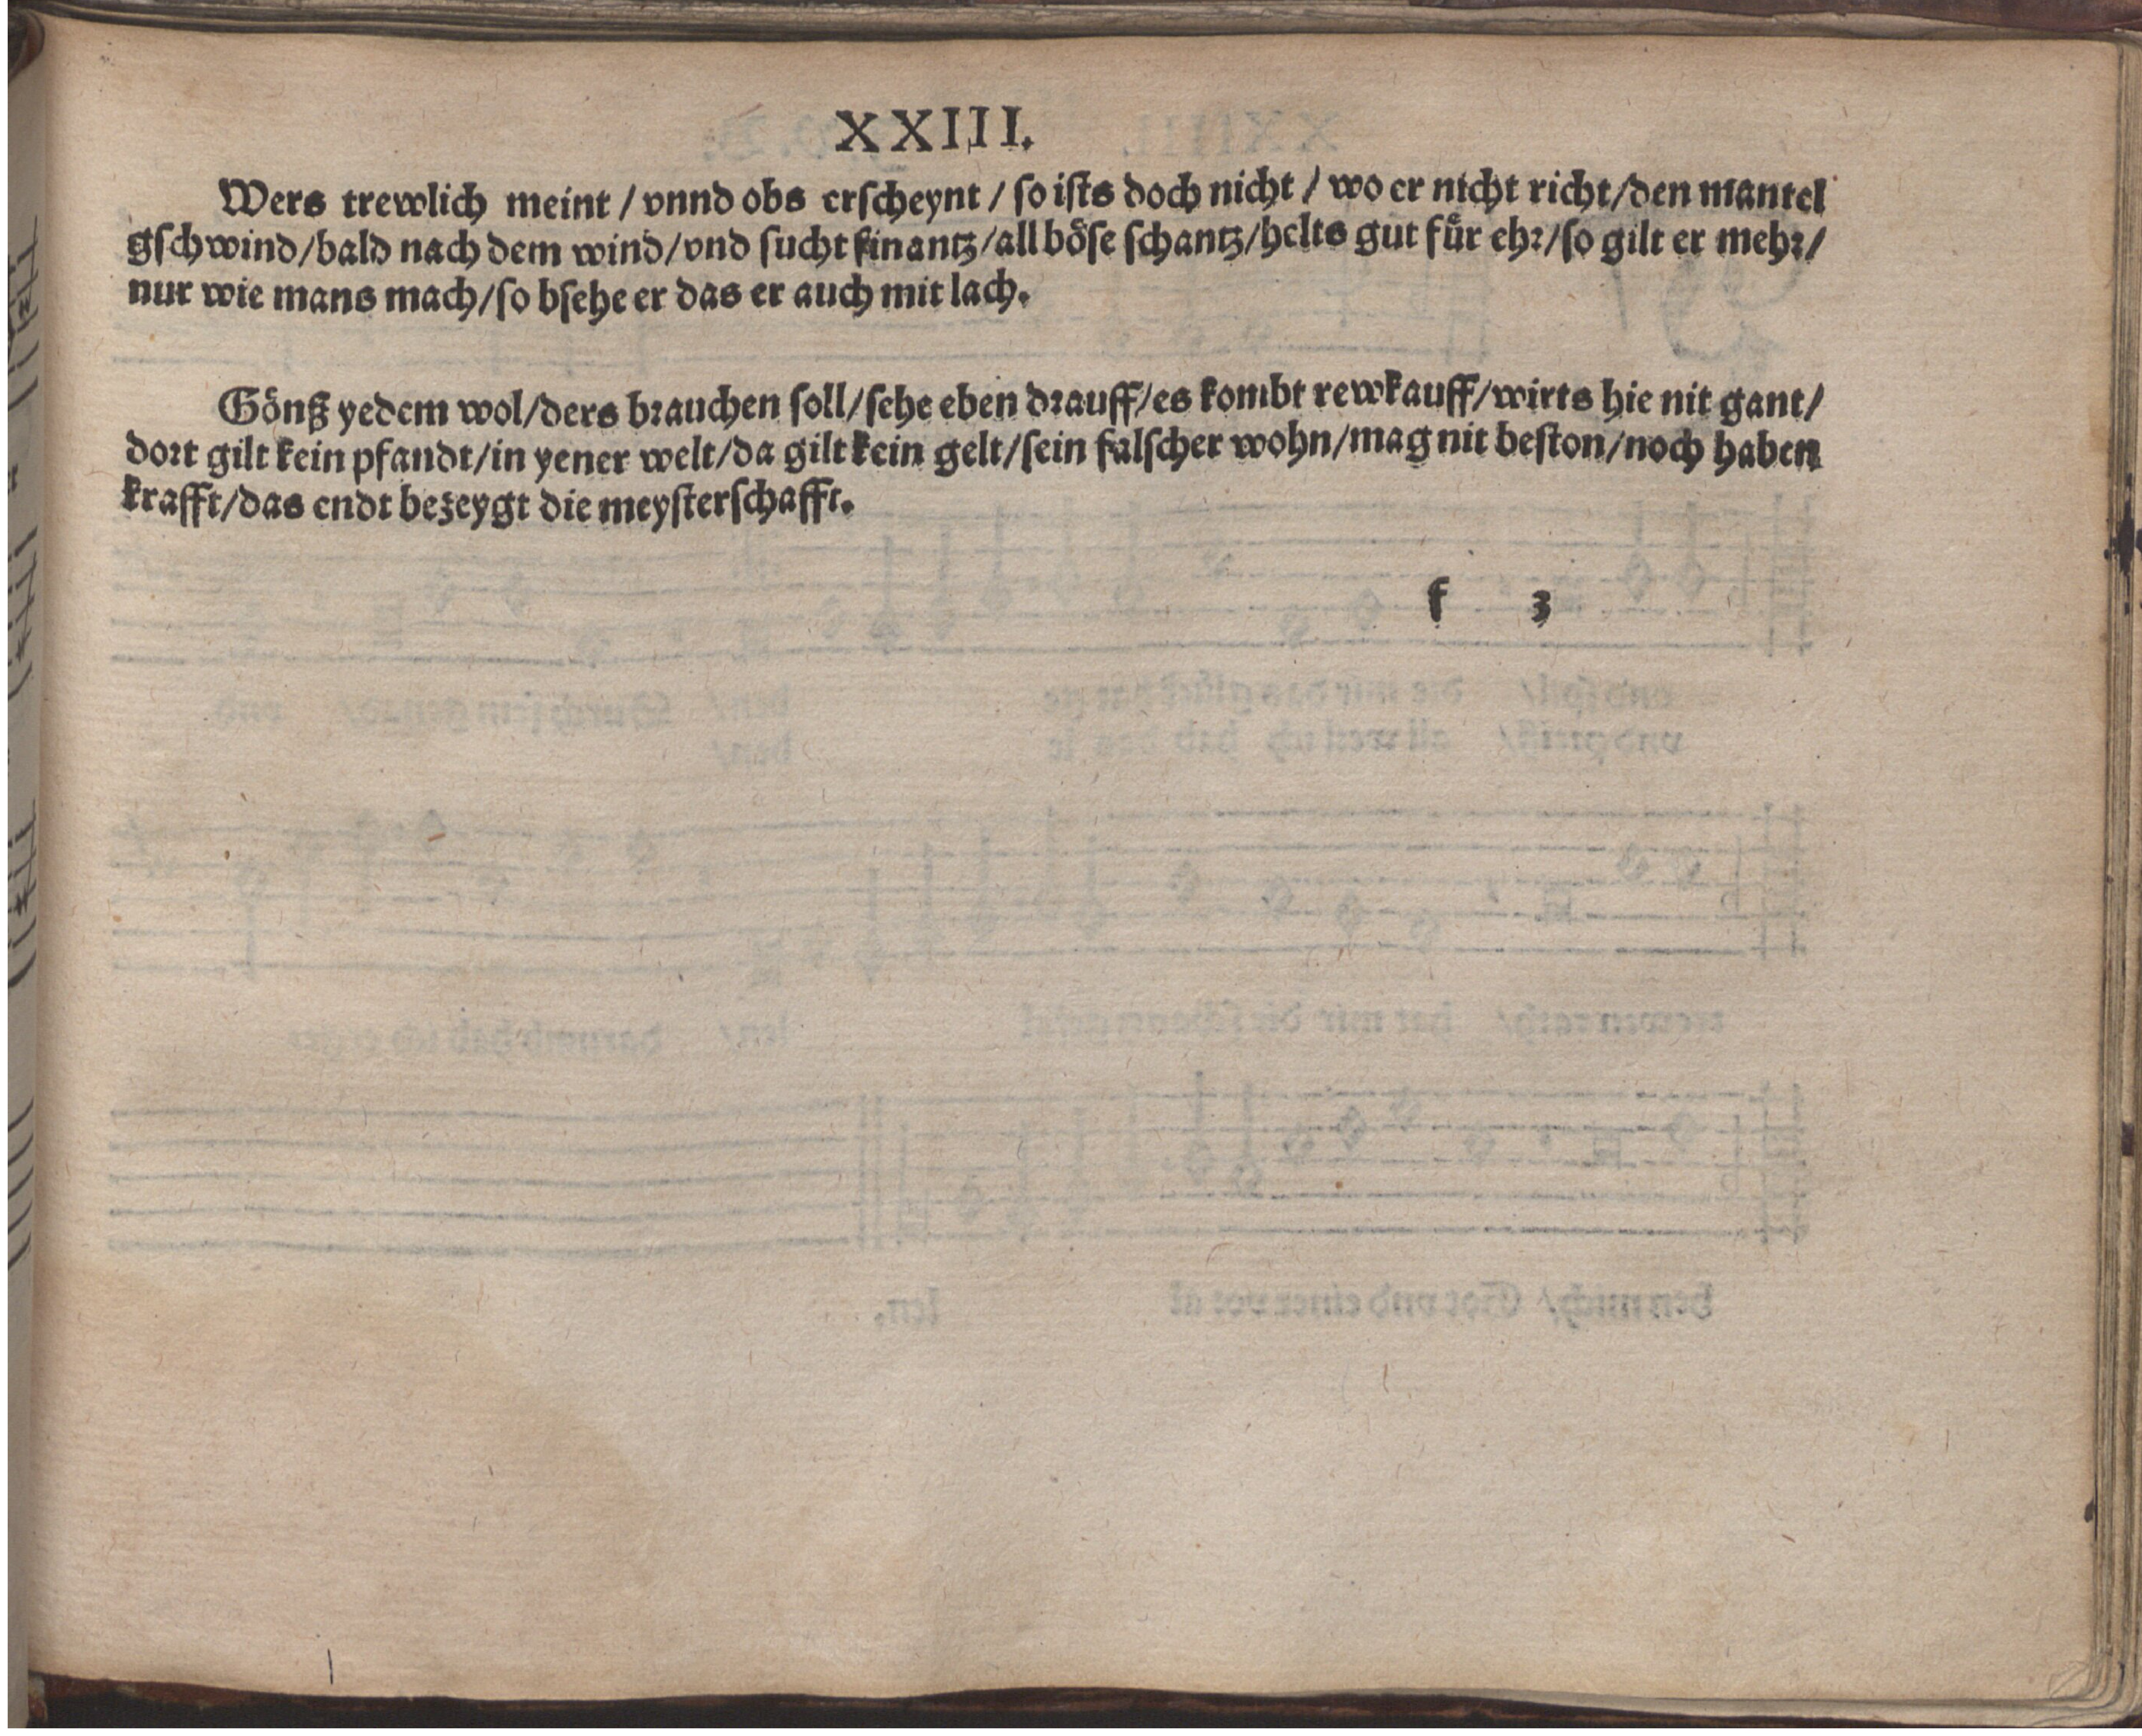 XXIII.
Wers trewlich meint / vnnd obs erscheynt / so ists doch nicht / wo er nicht richt/den mantel
gschwind/bald nach dem wind/vnd sucht finantz/all böse schantz/helts gut für ehr/so gilt er mehr/
nur wie mans mach/so bsehe er das er auch mit lach.
Gönß yedem wol/ders brauchen soll/sehe eben drauff/es kombt rewkauff/wirts hie nit gant/
dort gilt kein pfandt/in yener welt/da gilt kein gelt/sein falscher wohn/mag nit beston/noch haben
krafft/das endt bezeygt die meysterschafft.
f 3